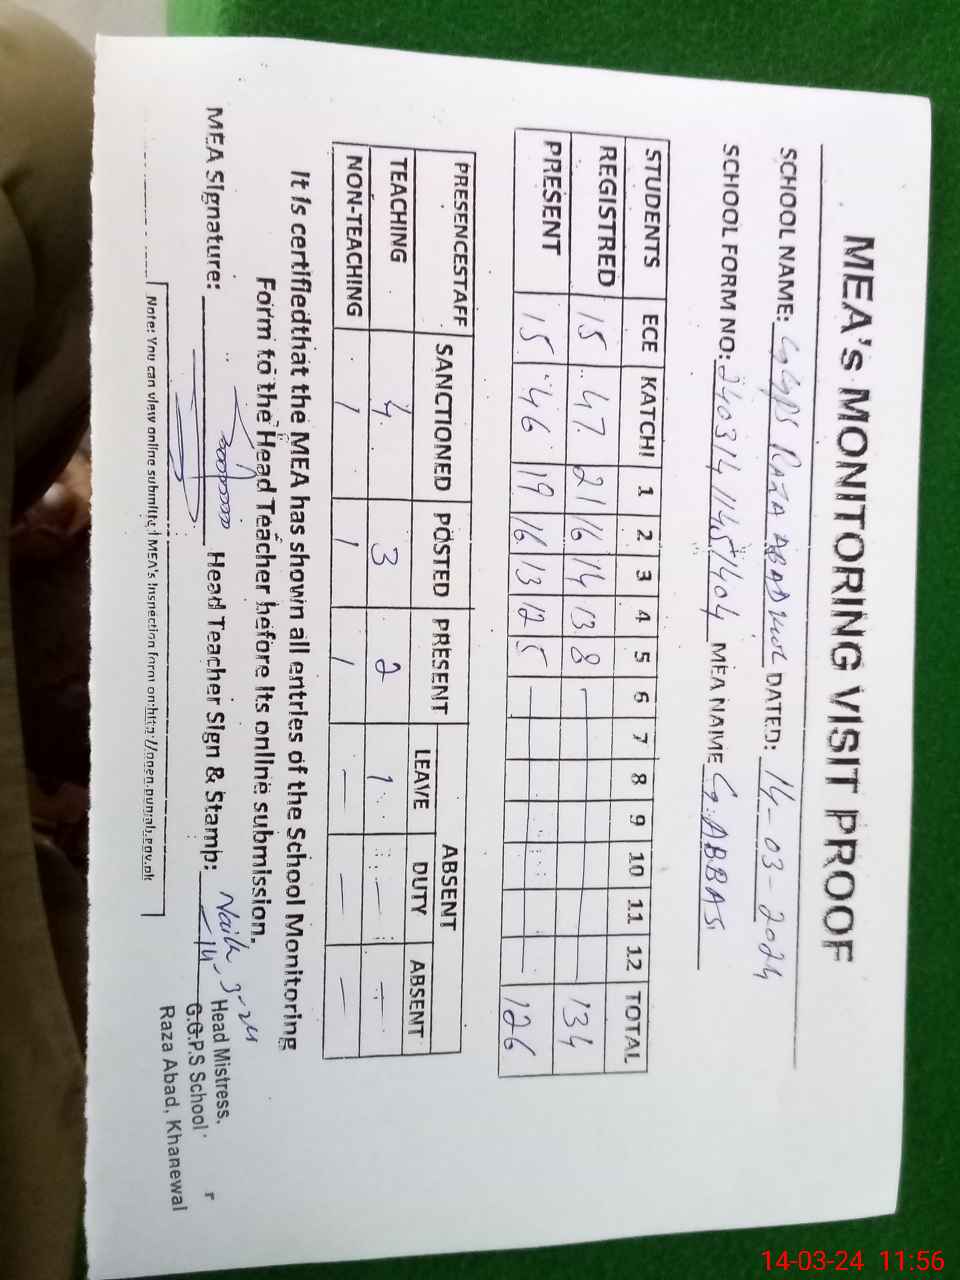 MEA's MONITORING VISIT PROOF
SCHOOL NAME: GGPS RAZA ABAD DATED: 14-03-2024
SCHOOL FORM NO: MEA NAME G.ABBAS
STUDENTS ECE KATCHI 1 2 3 4 5 6 7 8 9 10 11 12 TOTAL
REGISTRED 15 47 21 16 14 13 8 — 134
PRESENT 15 46 19 16 13 12 5 — 126
PRESENCESTAFF SANCTIONED POSTED PRESENT ABSENT
LEAVE DUTY ABSENT
TEACHING 4 3 2 1 — —
NON-TEACHING 1 1 1 — — —
It is certifiedthat the MEA has shown all entries of the School Monitoring
Form to the Head Teacher before its online submission.
MEA Signature: Head Teacher Sign & Stamp:
14-3-24
Head Mistress,
G.G.P.S School
Raza Abad, Khanewal
Note: You can view online submitted MEA's Inspection form on:http://open.punjab.gov.pk
14-03-24 11:56